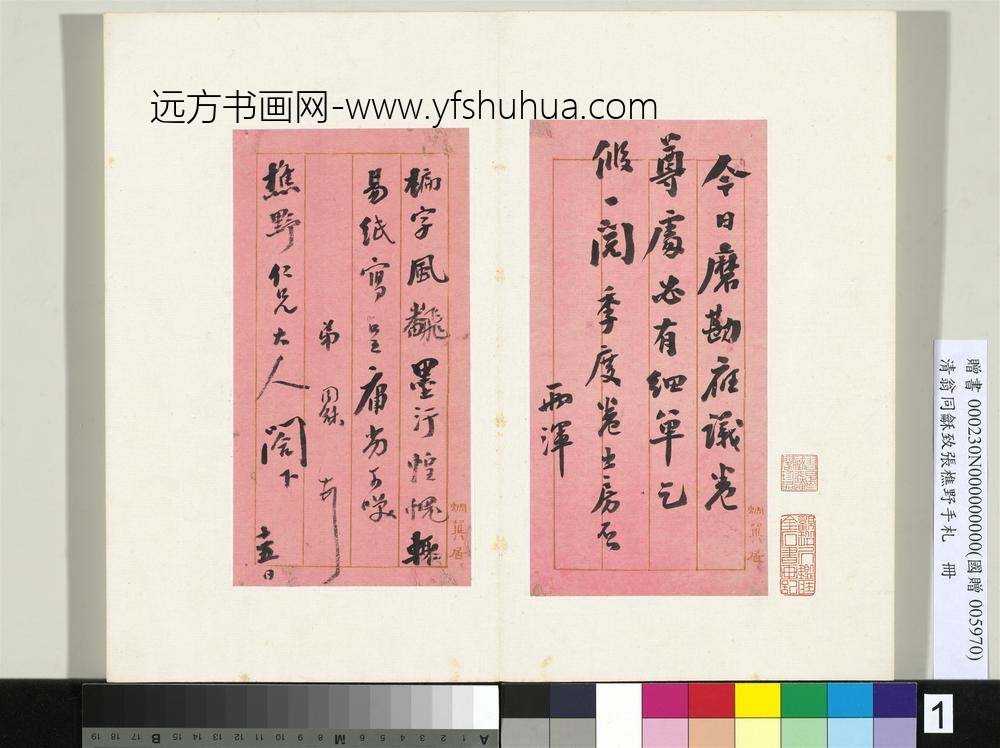 远方书画网-www.yfshuhua.com
今日磨勘廷議卷
尊處必有細單乞
假一閱季度卷出房否
兩渾
楄字風翻墨污惶愧輒
易紙寫呈庸劣可噱
樵野仁兄大人閤下
弟同龢頓
十五日
贈書 000230N000000000(國贈 005970)
清翁同龢致張樵野手札 冊
1
A 1 2 3 4 5 6 M 8 9 10 11 12 13 14 15 B 17 18 19